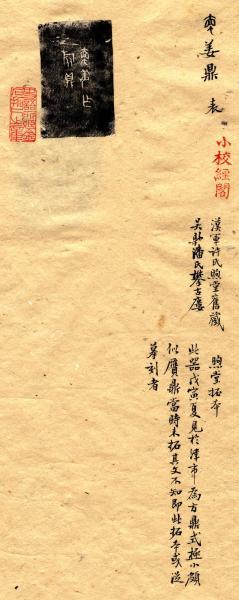 姜鼎
小校經閣
漢軍許氏煦堂舊藏 煦堂拓本
吴縣潘氏攀古廔
此器戊寅夏見於津市為方鼎式極小頗
似贗鼎當時未拓其文不知即此拓本或從
摹刻者